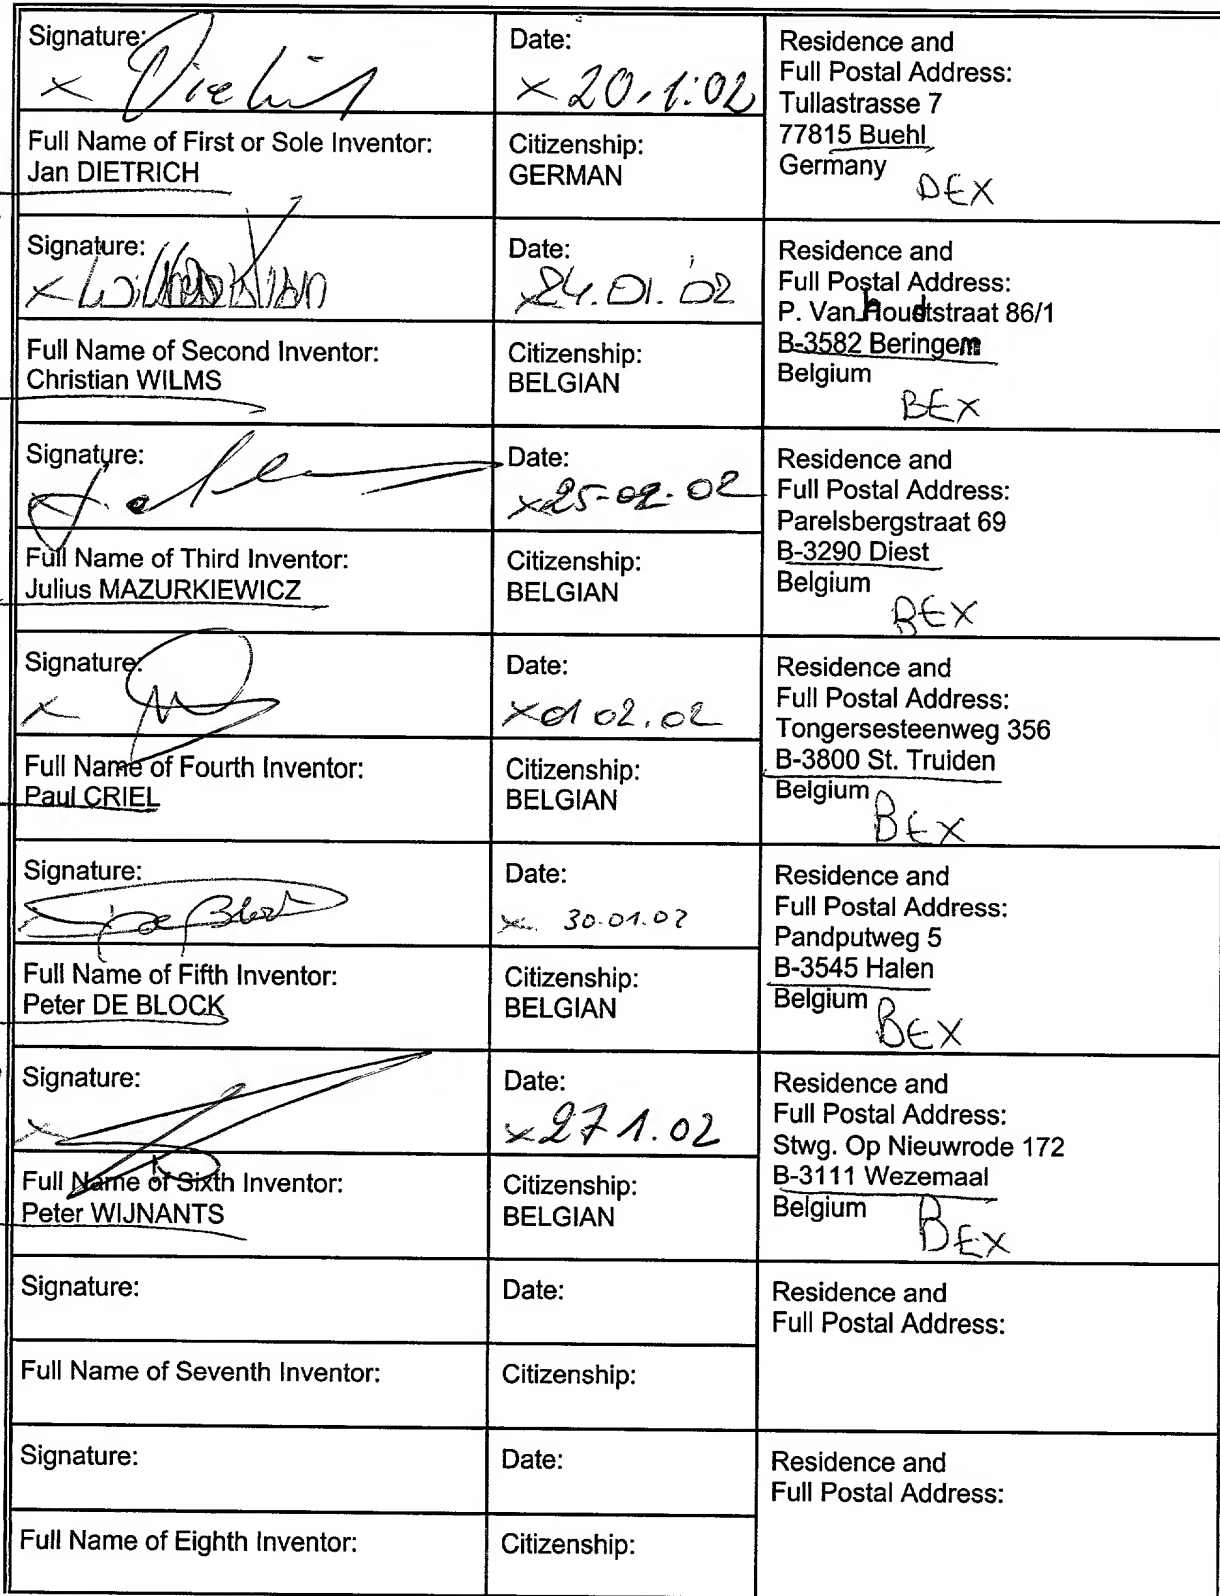 Signature:
×
Date:
× 20.1.02
Residence and
Full Postal Address:
Tullastrasse 7
77815 Buehl
Germany
DEX
Full Name of First or Sole Inventor:
Jan DIETRICH
Citizenship:
GERMAN
Signature:
×
Date:
×24.01.'02
Residence and
Full Postal Address:
P. Vanhoudtstraat 86/1
B-3582 Beringem
Belgium
BEX
Full Name of Second Inventor:
Christian WILMS
Citizenship:
BELGIAN
Signature:
×
Date:
×25-02-02
Residence and
Full Postal Address:
Parelsbergstraat 69
B-3290 Diest
Belgium
BEX
Full Name of Third Inventor:
Julius MAZURKIEWICZ
Citizenship:
BELGIAN
Signature:
×
Date:
×01 02.02
Residence and
Full Postal Address:
Tongersesteenweg 356
B-3800 St. Truiden
Belgium
BEX
Full Name of Fourth Inventor:
Paul CRIEL
Citizenship:
BELGIAN
Signature:
× De Block
Date:
× 30.01.02
Residence and
Full Postal Address:
Pandputweg 5
B-3545 Halen
Belgium
BEX
Full Name of Fifth Inventor:
Peter DE BLOCK
Citizenship:
BELGIAN
Signature:
×
Date:
×27 1.02
Residence and
Full Postal Address:
Stwg. Op Nieuwrode 172
B-3111 Wezemaal
Belgium
BEX
Full Name of Sixth Inventor:
Peter WIJNANTS
Citizenship:
BELGIAN
Signature:
Date:
Residence and
Full Postal Address:
Full Name of Seventh Inventor:
Citizenship:
Signature:
Date:
Residence and
Full Postal Address:
Full Name of Eighth Inventor:
Citizenship: